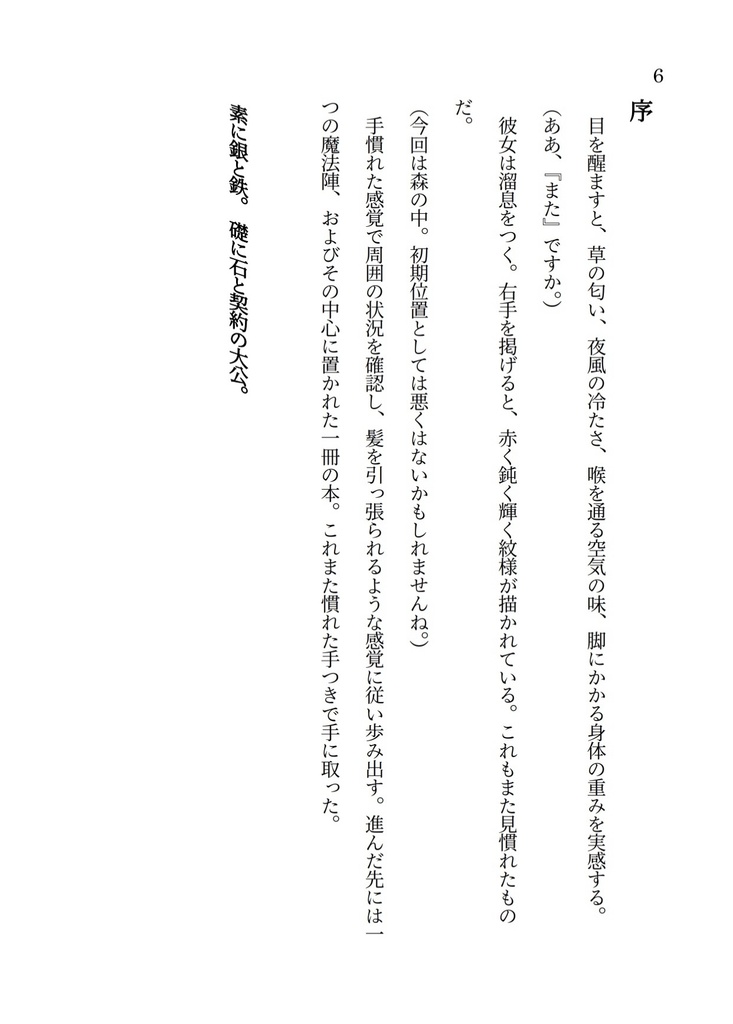 6
序
　目を醒ますと、草の匂い、夜風の冷たさ、喉を通る空気の味、脚にかかる身体の重みを実感する。
（ああ、『また』ですか。）
　彼女は溜息をつく。右手を掲げると、赤く鈍く輝く紋様が描かれている。これもまた見慣れたもの
だ。
（今回は森の中。初期位置としては悪くはないかもしれませんね。）
　手慣れた感覚で周囲の状況を確認し、髪を引っ張られるような感覚に従い歩み出す。進んだ先には一
つの魔法陣、およびその中心に置かれた一冊の本。これまた慣れた手つきで手に取った。
素に銀と鉄。　礎に石と契約の大公。